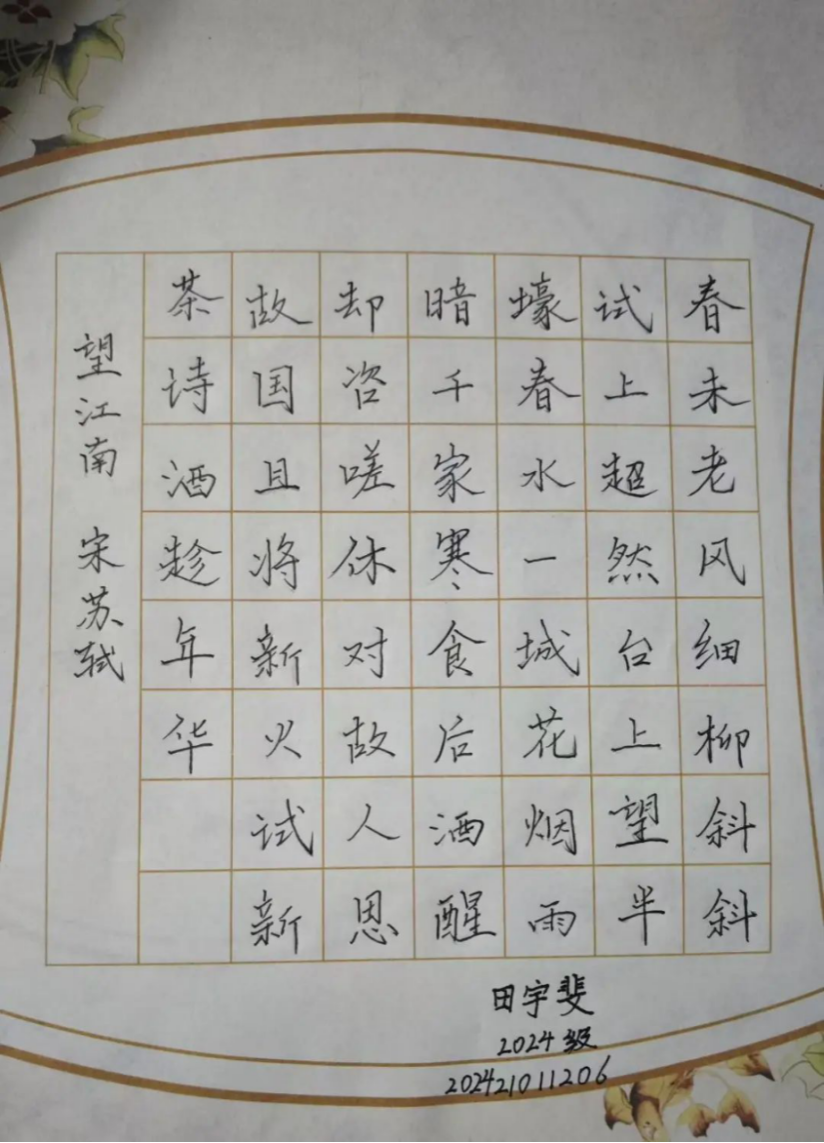 春未老风细柳斜斜
试上超然台上望半
壕春水一城花烟雨
暗千家寒食后酒醒
却咨嗟休对故人恩
故国且将新火试新
茶诗酒趁年华
望江南 宋苏轼
田宇斐
2024级
202421011206